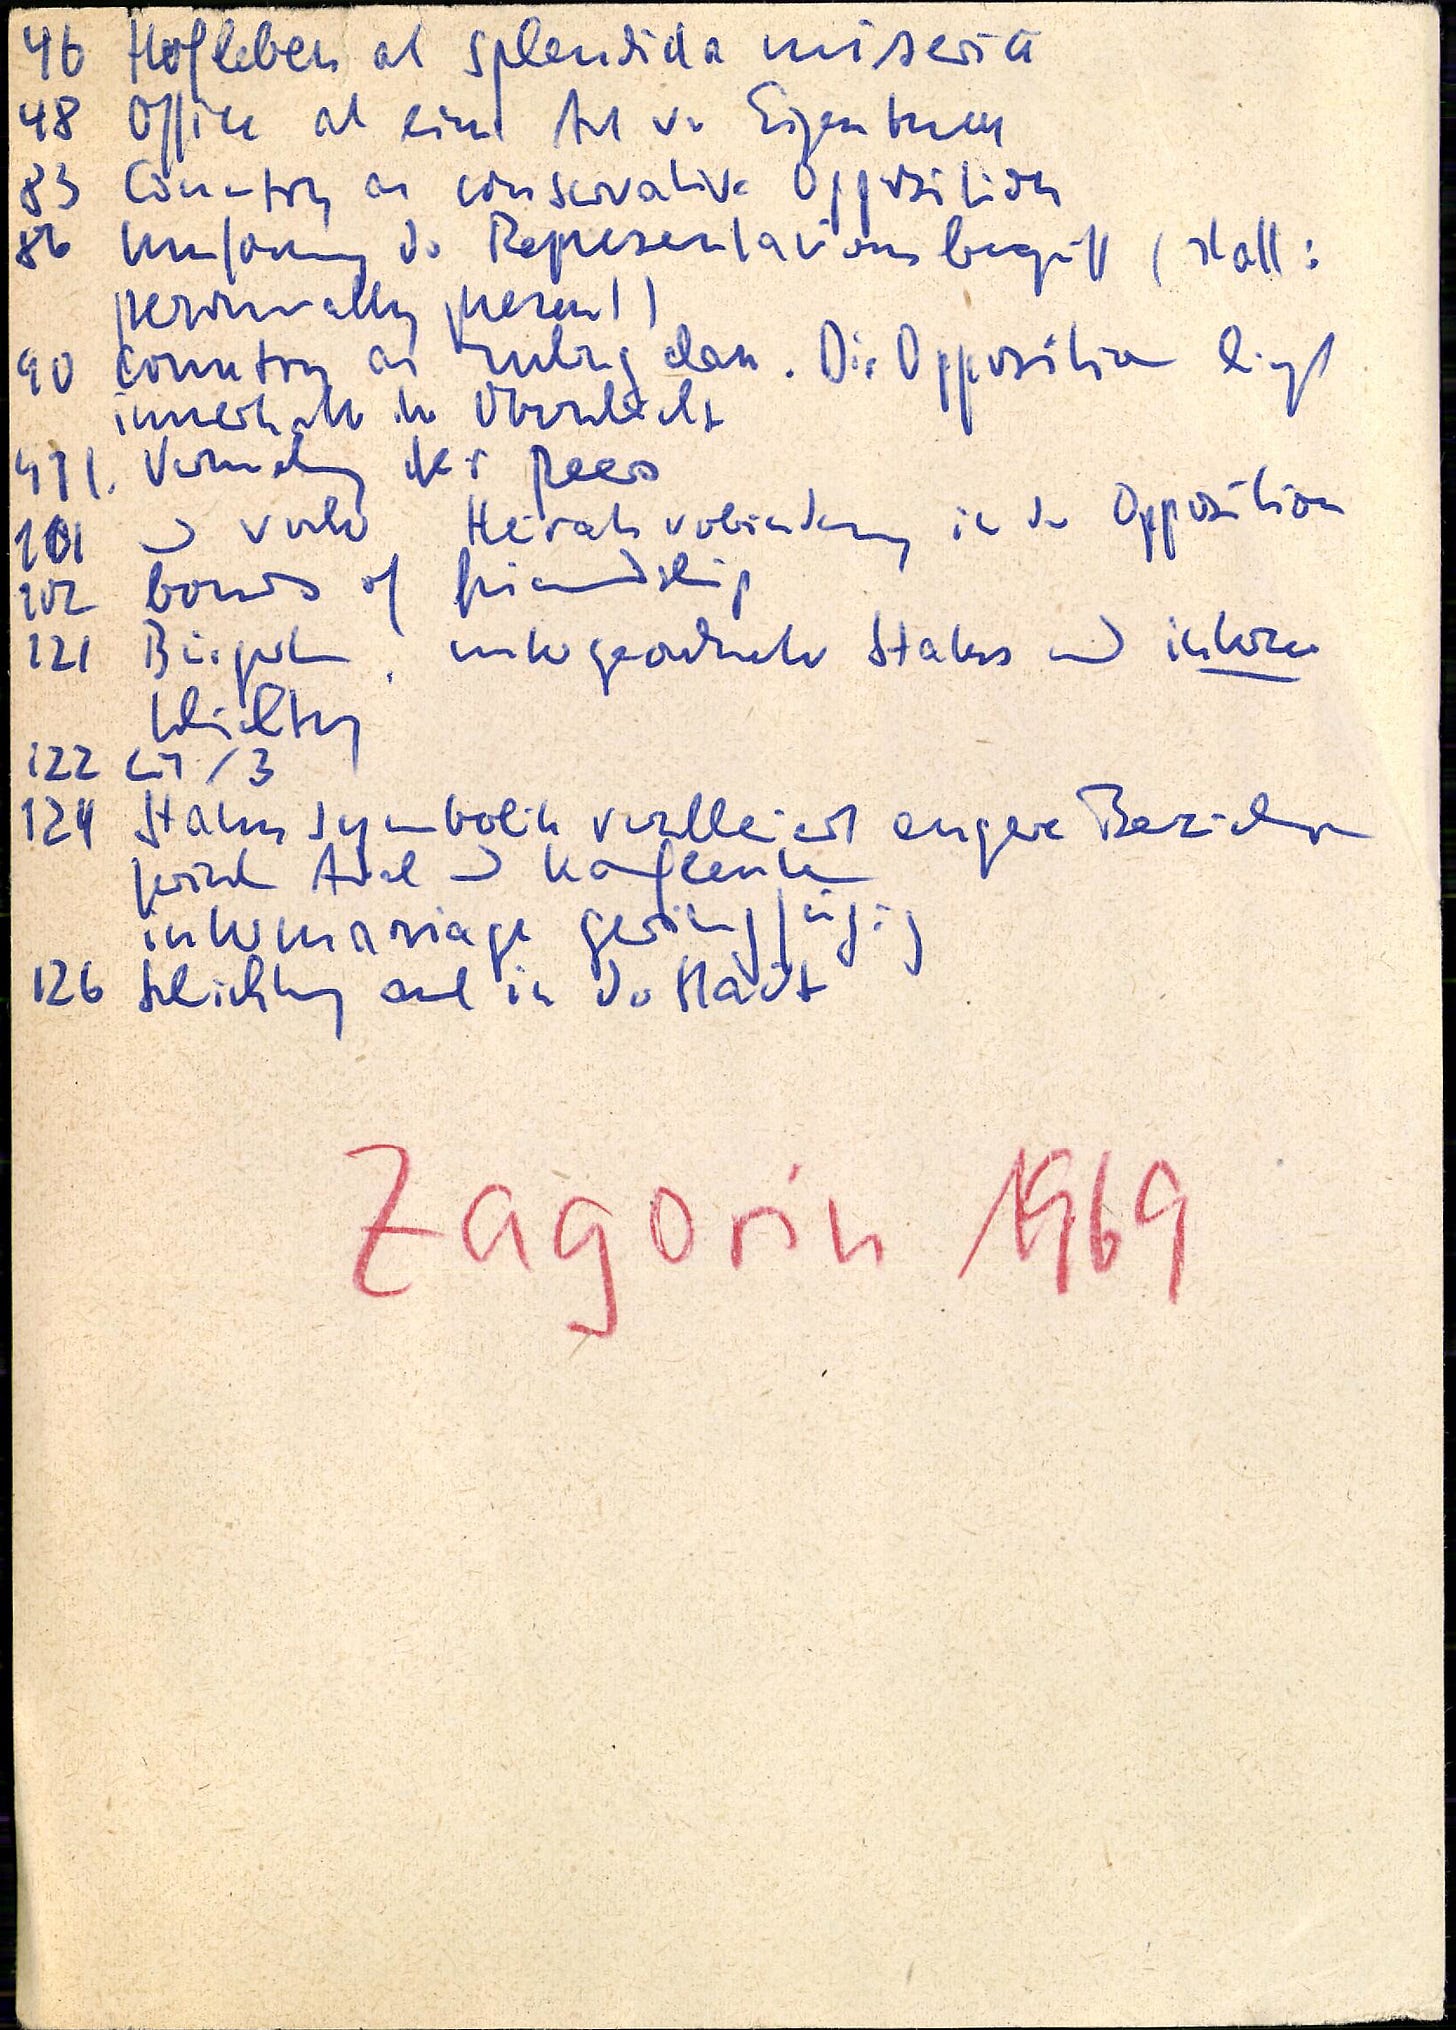 46 Hofleben als splendida miseria
48 Office als eine Art von Eigentum
83 Country as conservative Opposition
86 Umformung des Repräsentationsbegriff (statt:
personally present)
90 country as ruling class. Die Opposition liegt
innerhalb der Oberschicht
91f. Vermehrung der peers
101 und Heiratsverbindung in der Opposition
102 bonds of friendship
121 untergeordneter Status und interne
Schichtung
122 Lit / 3
124 Statussymbolik verschleiert engere Beziehungen
zwischen Adel und Kaufleuten
intermarriage geringfügig
126 Schichtung auch in der Stadt
Zagorin 1969